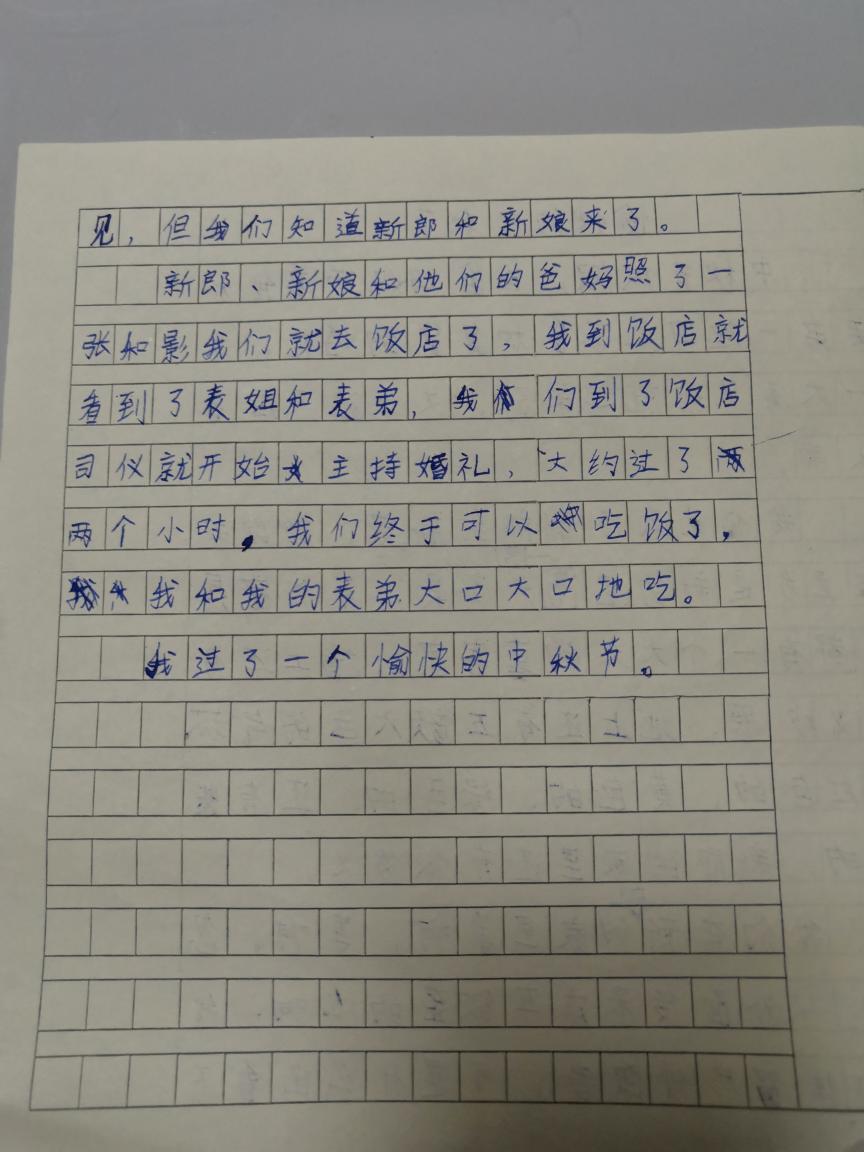 见，但我们知道新郎和新娘来了。
新郎、新娘和他们的爸妈照了一
张和影我们就去饭店了，我到饭店就
看到了表姐和表弟，我们到了饭店
司仪就开始主持婚礼，大约过了
两个小时，我们终于可以吃饭了，
我和我的表弟大口大口地吃。
我过了一个愉快的中秋节。